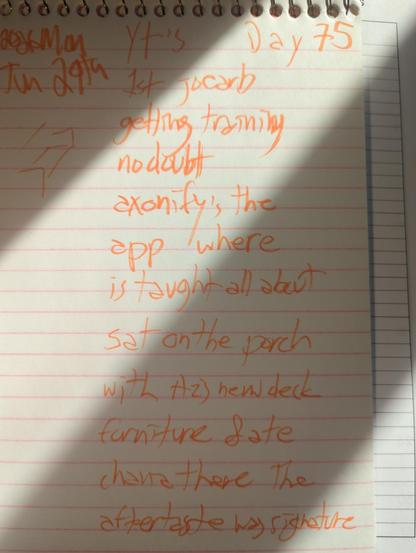 Mon Yt is Day 75
Jun 29th 1st jocarb
getting training
no doubt
axonify's the
app where
is taught all about
sat on the porch
with new deck
furniture & ate
there The
aftertaste was signature